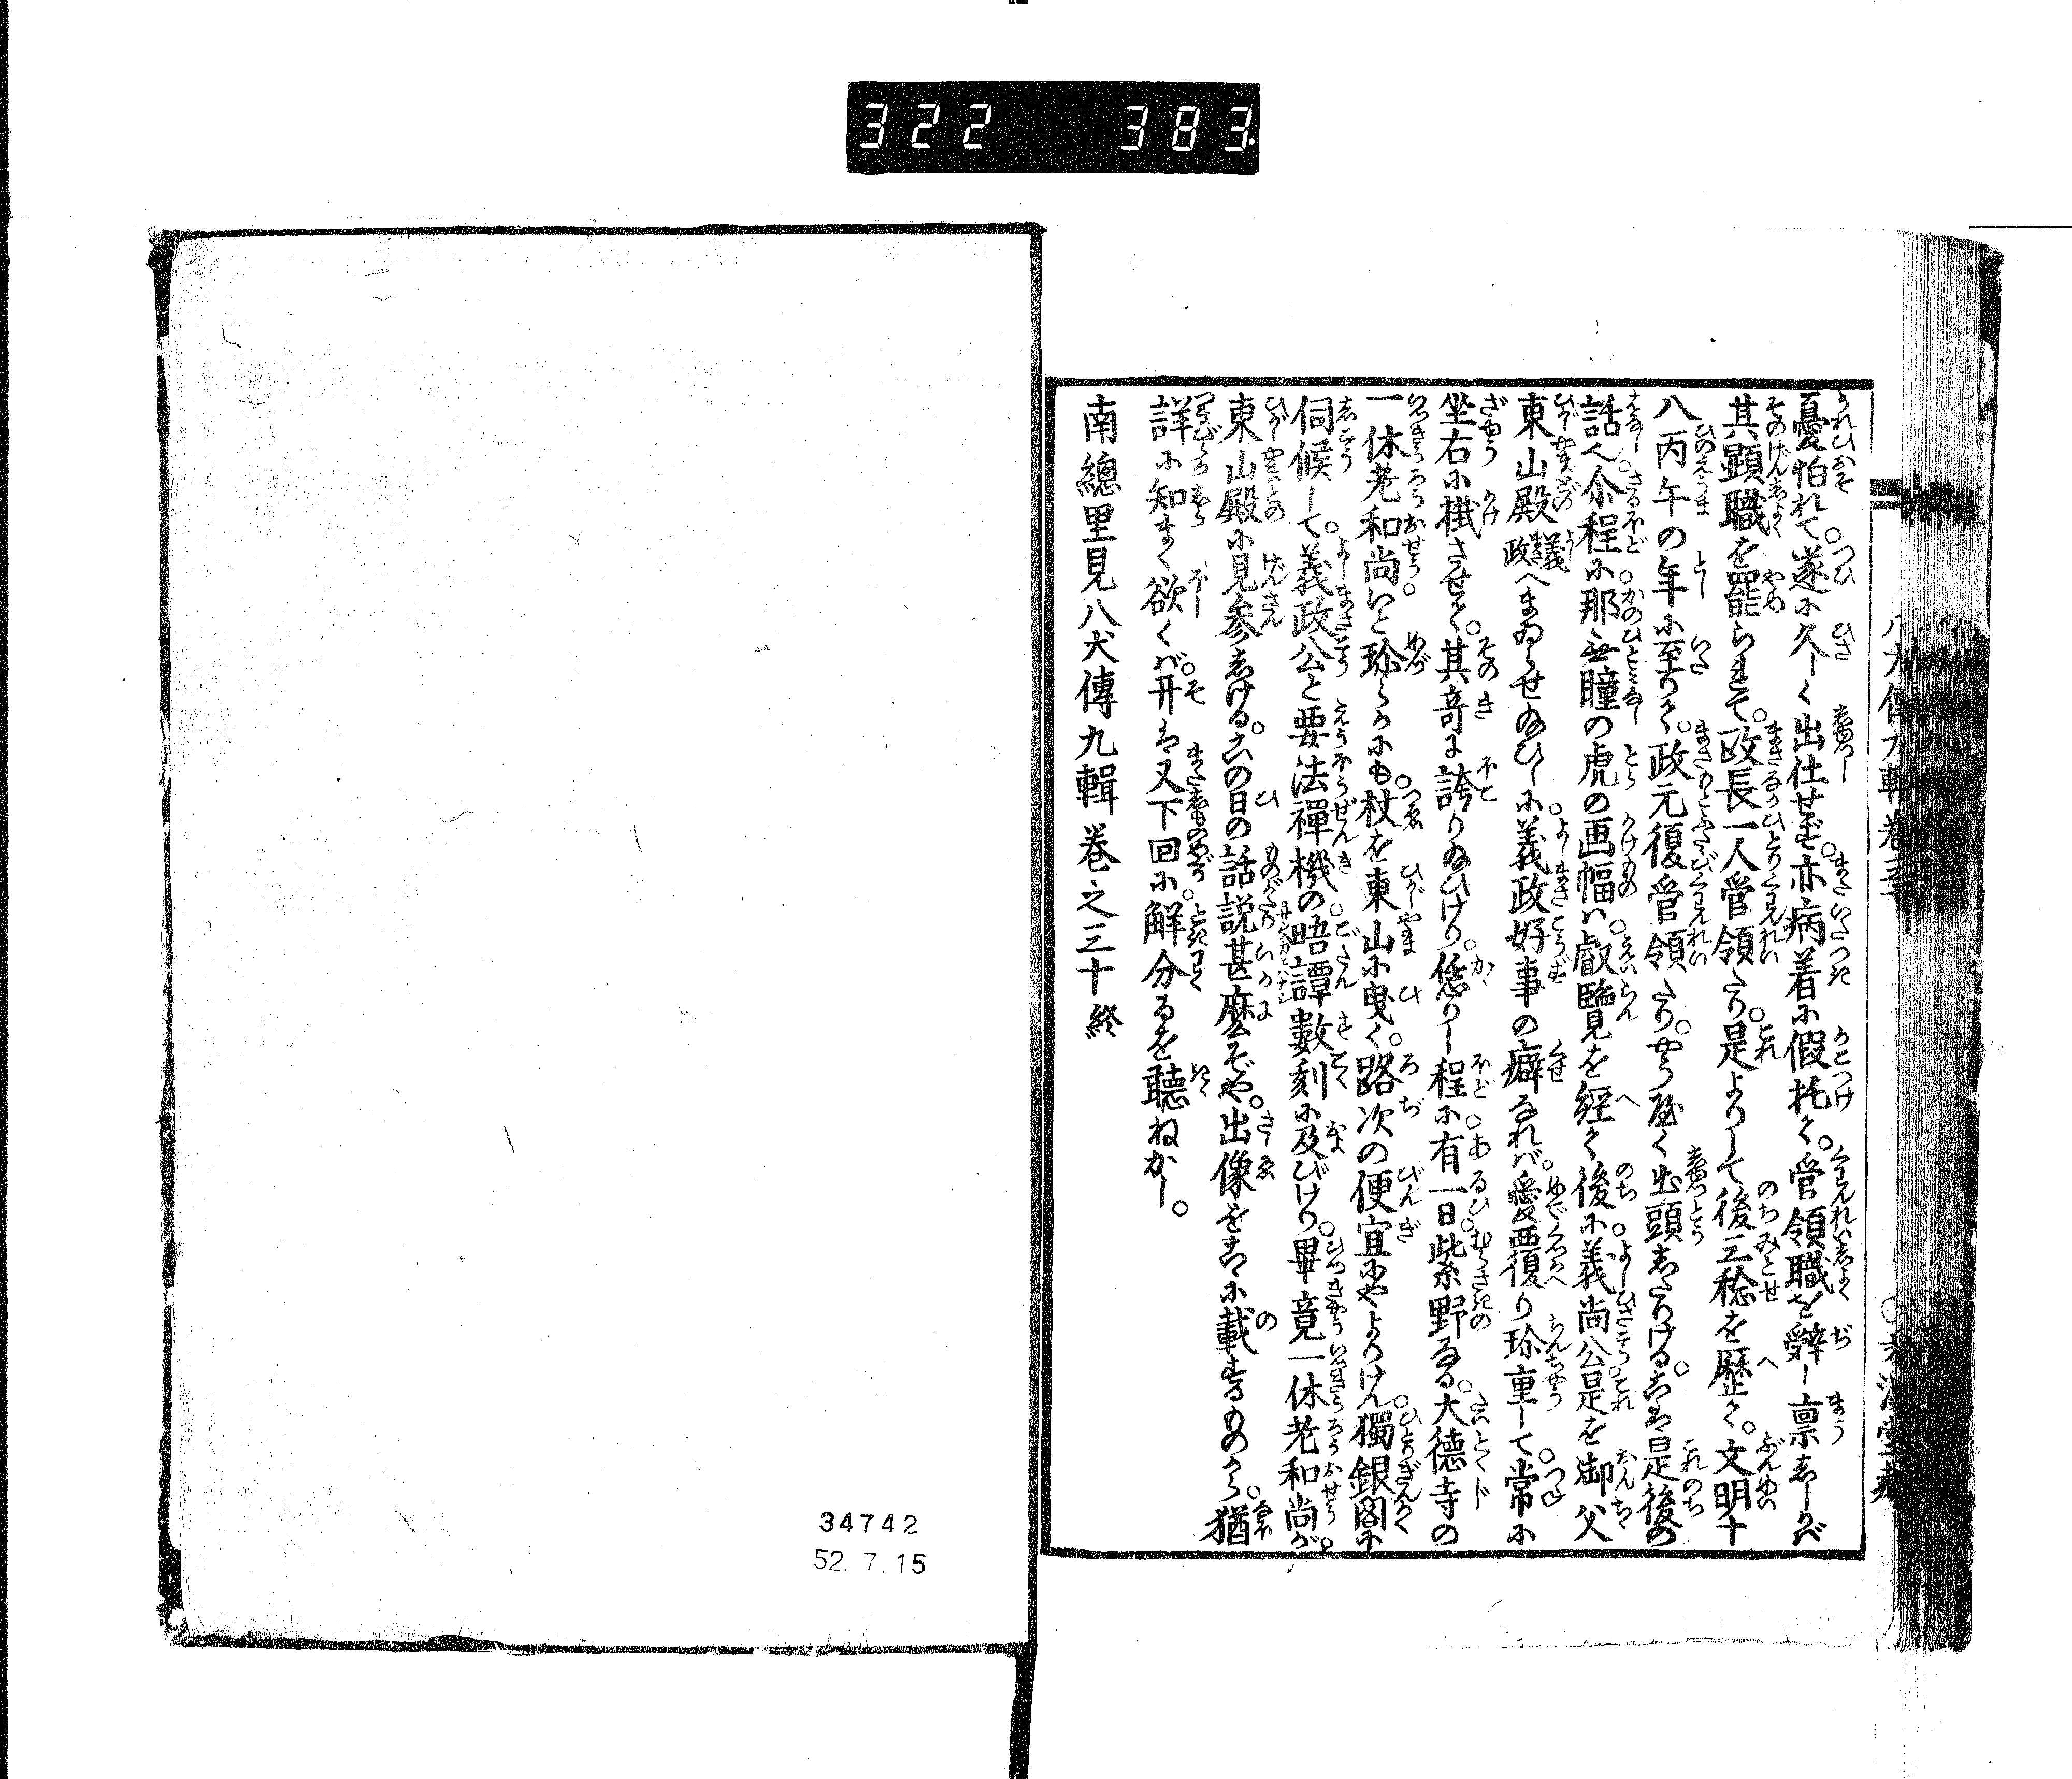 322 383
憂怕れて。遂に久しく出仕せず。亦病着に假托て。管領職を辭し稟ししかば
其顕職を罷られて。政長一人管領たり。是よりして後三稔を歴て。文明十
八丙午の年に至りて。政元復管領たり。やうやく出頭したりける。こは是後の
話也。介程に那無瞳の虎の画幅は。叡覧を経て後に。義尚公是を御父
東山殿義政へまゐらせ給ひしに。義政好事の癖なれば。愛覆り珍重して。常に
坐右に掛させて。其奇に誇り給ひけり。恁りし程に。有一日。紫野なる。大徳寺の
一休老和尚。いと珍らかにも。杖を東山に曳く。路次の便宜にやよりけん。獨銀閣に
伺候して。義政公と要法禪機の。晤譚數刻に及びけり。畢竟一休老和尚が。
東山殿に見参しける。この日の話説甚麼ぞや。出像をこゝに載するものから。猶
詳に知まく欲くば。开は又下回に。解分るを聴ねかし。
南總里見八犬傳九輯卷之三十終
八犬傳九輯卷三十
34742
52.7.15